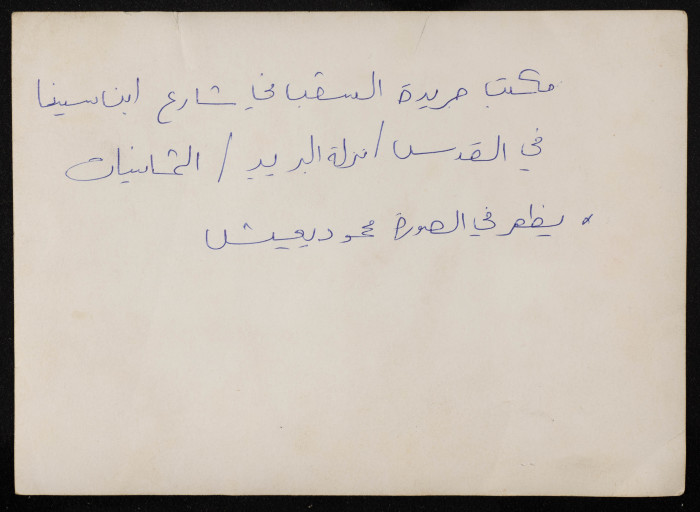 مكتب جريدة السقبا في شارع ابن سينا
في القدس / نزلة البريد / الثمانينات
* يظهر في الصورة محمود يعيش